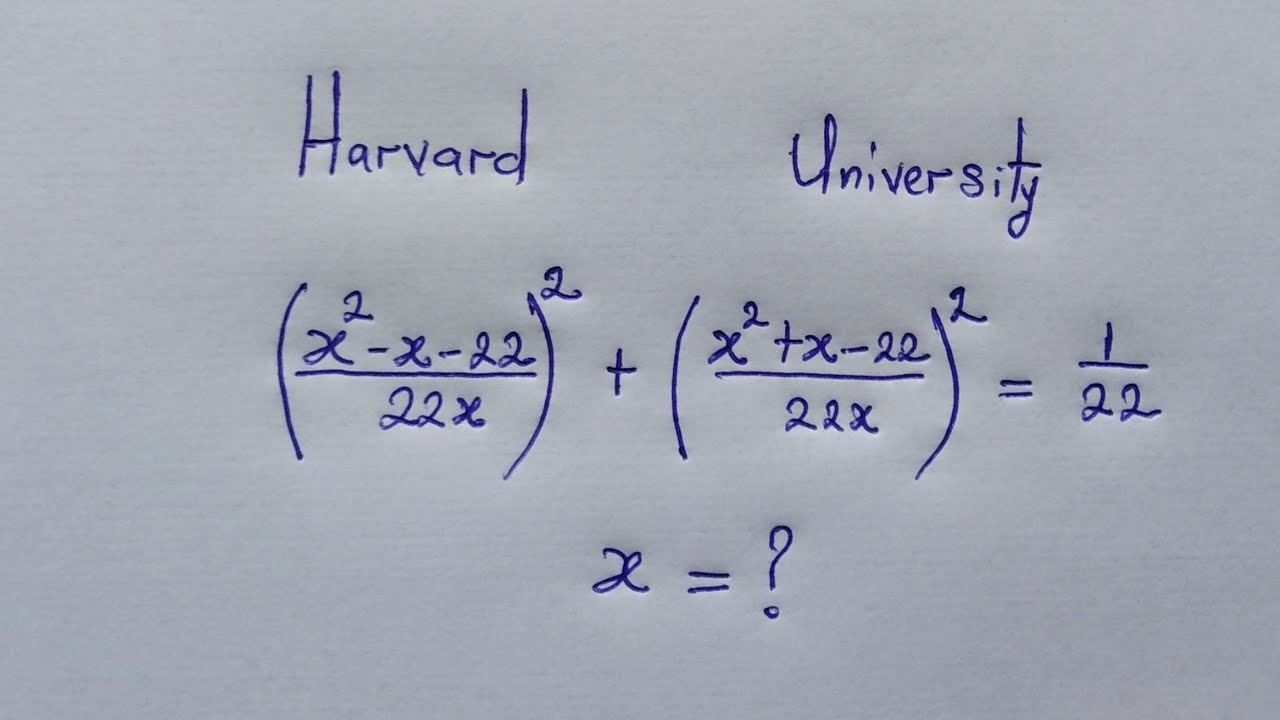 Harvard University
(x² - x - 22 / 22x)² + (x² + x - 22 / 22x)² = 1/22
x = ?